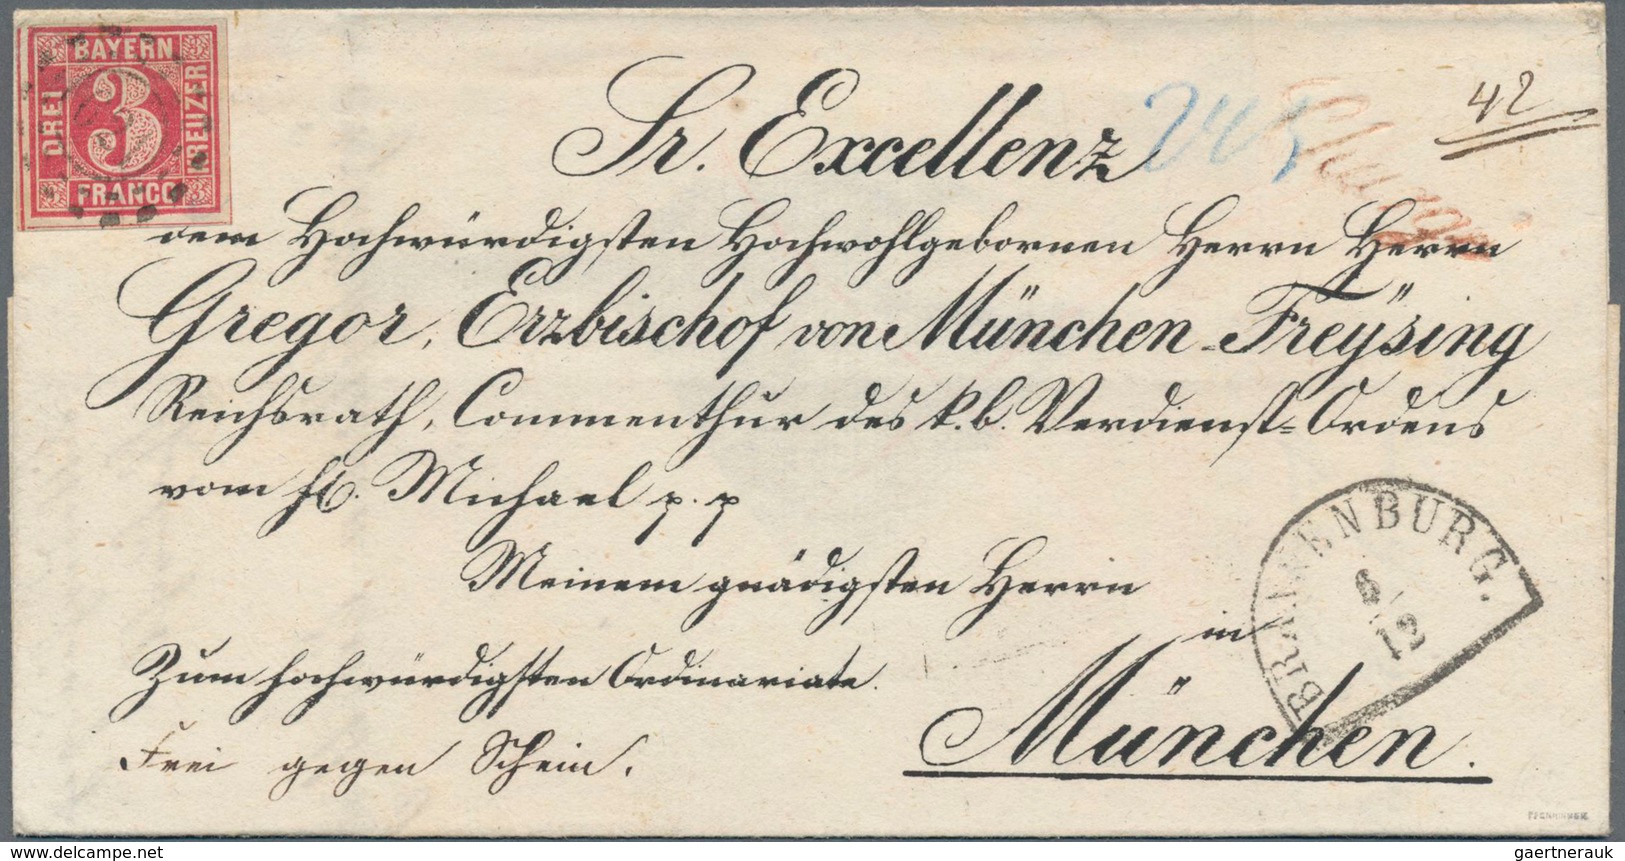 BAYERN
DREI 3 KREUZER
FRANCO
42
Sr. Excellenz
dem Hochwürdigsten Hochwohlgebornen Herrn Herrn
Gregor, Erzbischof von München-Freÿsing
Reichsrath, Commenthur des k. b. Verdienst-Ordens
vom hl. Michael p. p
Meinem gnädigsten Herrn
in
Zum hochwürdigsten Ordinariate.
München.
Frei gegen Schein.
BRANNENBURG.
6
12
PFENNINGER
www.delcampe.net
gaertnerauk